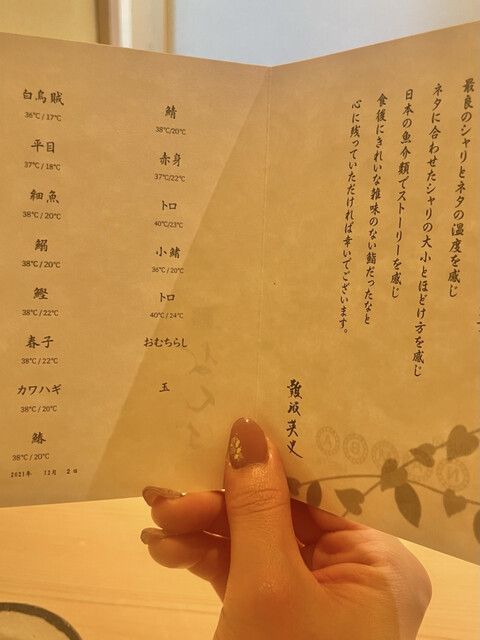 最良のシャリとネタの温度を感じ
ネタに合わせたシャリの大小とほどけ方を感じ
日本の魚介類でストーリーを感じ
食後にきれいな雑味のない鮨だったなと
心に残っていただければ幸いでございます。
難波英史
白烏賊
36℃/17℃
平目
37℃/18℃
細魚
38℃/20℃
鰯
38℃/20℃
鰹
38℃/22℃
春子
38℃/22℃
カワハギ
38℃/20℃
鰆
38℃/20℃
2021年 12月 2日
鯖
38℃/20℃
赤身
37℃/22℃
トロ
40℃/23℃
小鰭
36℃/20℃
トロ
40℃/24℃
おむちらし
玉